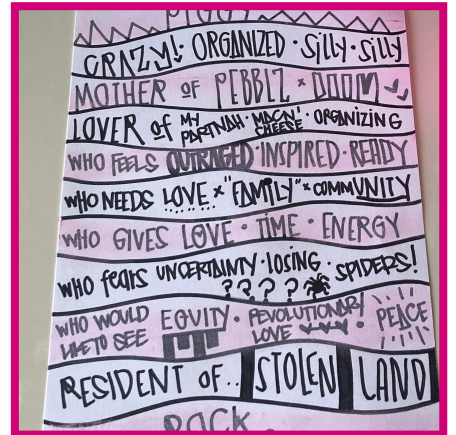 CRAZY! · ORGANIZED · Silly · Silly
MOTHER OF PEBBLZ × DOOM
LOVER of MY PARTNAH · MACN' CHEESE · ORGANIZING
WHO FEELS OUTRAGED · INSPIRED · READY
WHO NEEDS LOVE × "FAMILY" × COMMUNITY
WHO GIVES LOVE · TIME · ENERGY
WHO fears UNCERTAINTY · LOSING · SPIDERS!
? ? ? ?
WHO WOULD LIKE TO SEE EQUITY · REVOLUTIONARY LOVE · PEACE
RESIDENT OF.. STOLEN LAND
ROCK